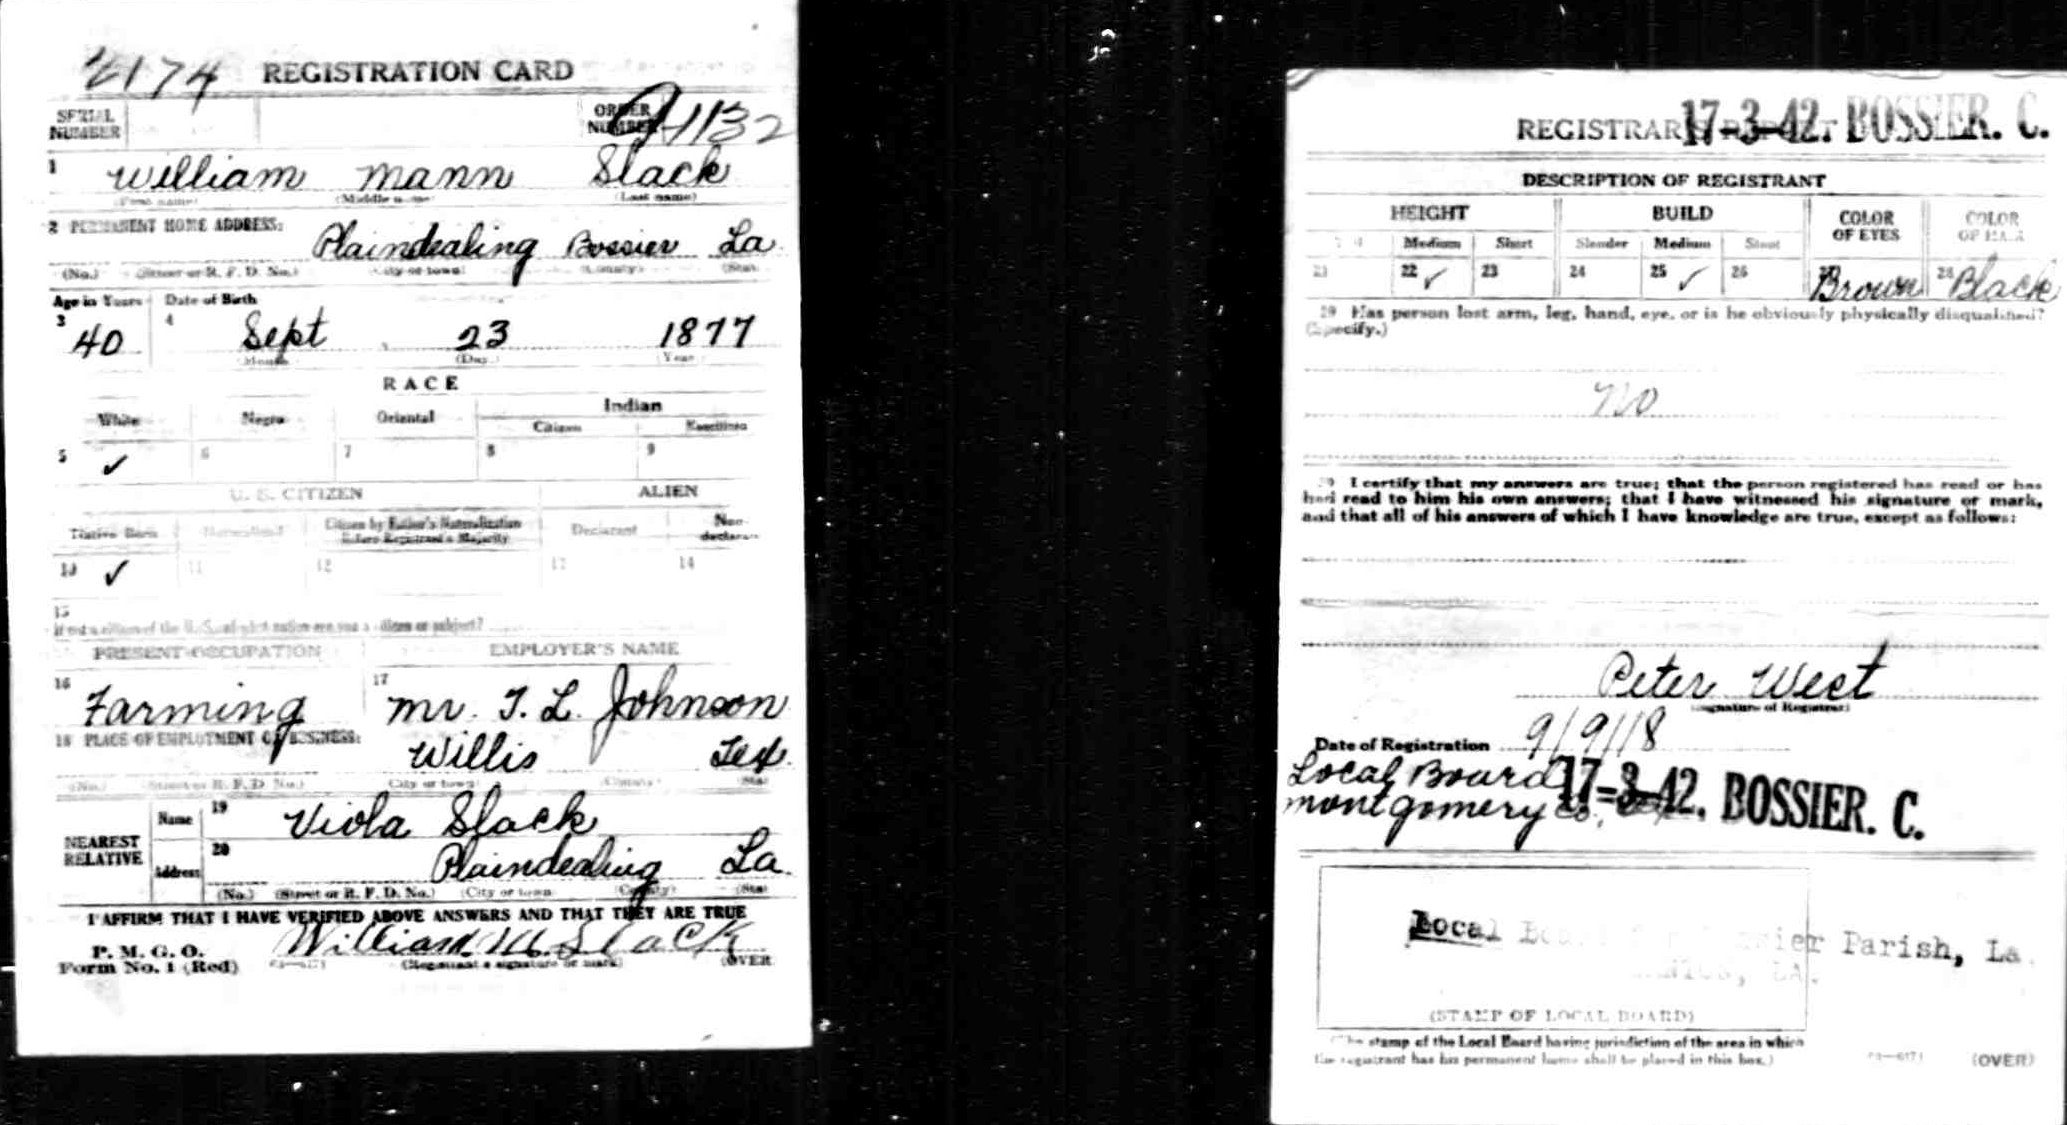 2174 REGISTRATION CARD
SERIAL NUMBER ORDER NUMBER A1132
1 William Mann Slack
(First name) (Middle name) (Last name)
2 PERMANENT HOME ADDRESS: Plaindealing Bossier La
(No.) (Street or R. F. D. No.) (City or town) (County) (State)
Age in Years Date of Birth
3 40 4 Sept 23 1877
(Month) (Day) (Year)
RACE
White Negro Oriental Indian
Citizen
5 ✓ 6 7 8 9
U. S. CITIZEN ALIEN
Native Born Naturalized Citizen by Father's Naturalization Before Registrant's Majority Declarant Non-declarant
10 ✓ 11 12 13 14
15
If not a citizen of the U. S., of what nation are you a citizen or subject?
PRESENT OCCUPATION EMPLOYER'S NAME
16 Farming 17 Mr. T. L. Johnson
18 PLACE OF EMPLOYMENT OR BUSINESS:
Willis Tex.
(No.) (Street or R. F. D. No.) (City or town) (County) (State)
NEAREST RELATIVE Name 19 Viola Slack
Address 20 Plaindealing La.
(No.) (Street or R. F. D. No.) (City or town) (County) (State)
I AFFIRM THAT I HAVE VERIFIED ABOVE ANSWERS AND THAT THEY ARE TRUE
P. M. G. O.
Form No. 1 (Red) William M. Slack
(Registrant's signature or mark) (OVER
REGISTRAR'S REPORT 17-3-42. BOSSIER. C.
DESCRIPTION OF REGISTRANT
HEIGHT BUILD COLOR OF EYES COLOR OF HAIR
Medium Short Slender Medium Stout
21 22 ✓ 23 24 25 ✓ 26 27 Brown 28 Black
29 Has person lost arm, leg, hand, eye, or is he obviously physically disqualified?
(Specify.)
No
30 I certify that my answers are true; that the person registered has read or has
had read to him his own answers; that I have witnessed his signature or mark,
and that all of his answers of which I have knowledge are true, except as follows:
Peter West
(Signature of Registrar)
Date of Registration 9/9/18
Local Board
Montgomery Co. 17-3-42. BOSSIER. C.
Local Board for Bossier Parish, La.
(STAMP OF LOCAL BOARD)
(The stamp of the Local Board having jurisdiction of the area in which
the registrant has his permanent home shall be placed in this box.)
(OVER)